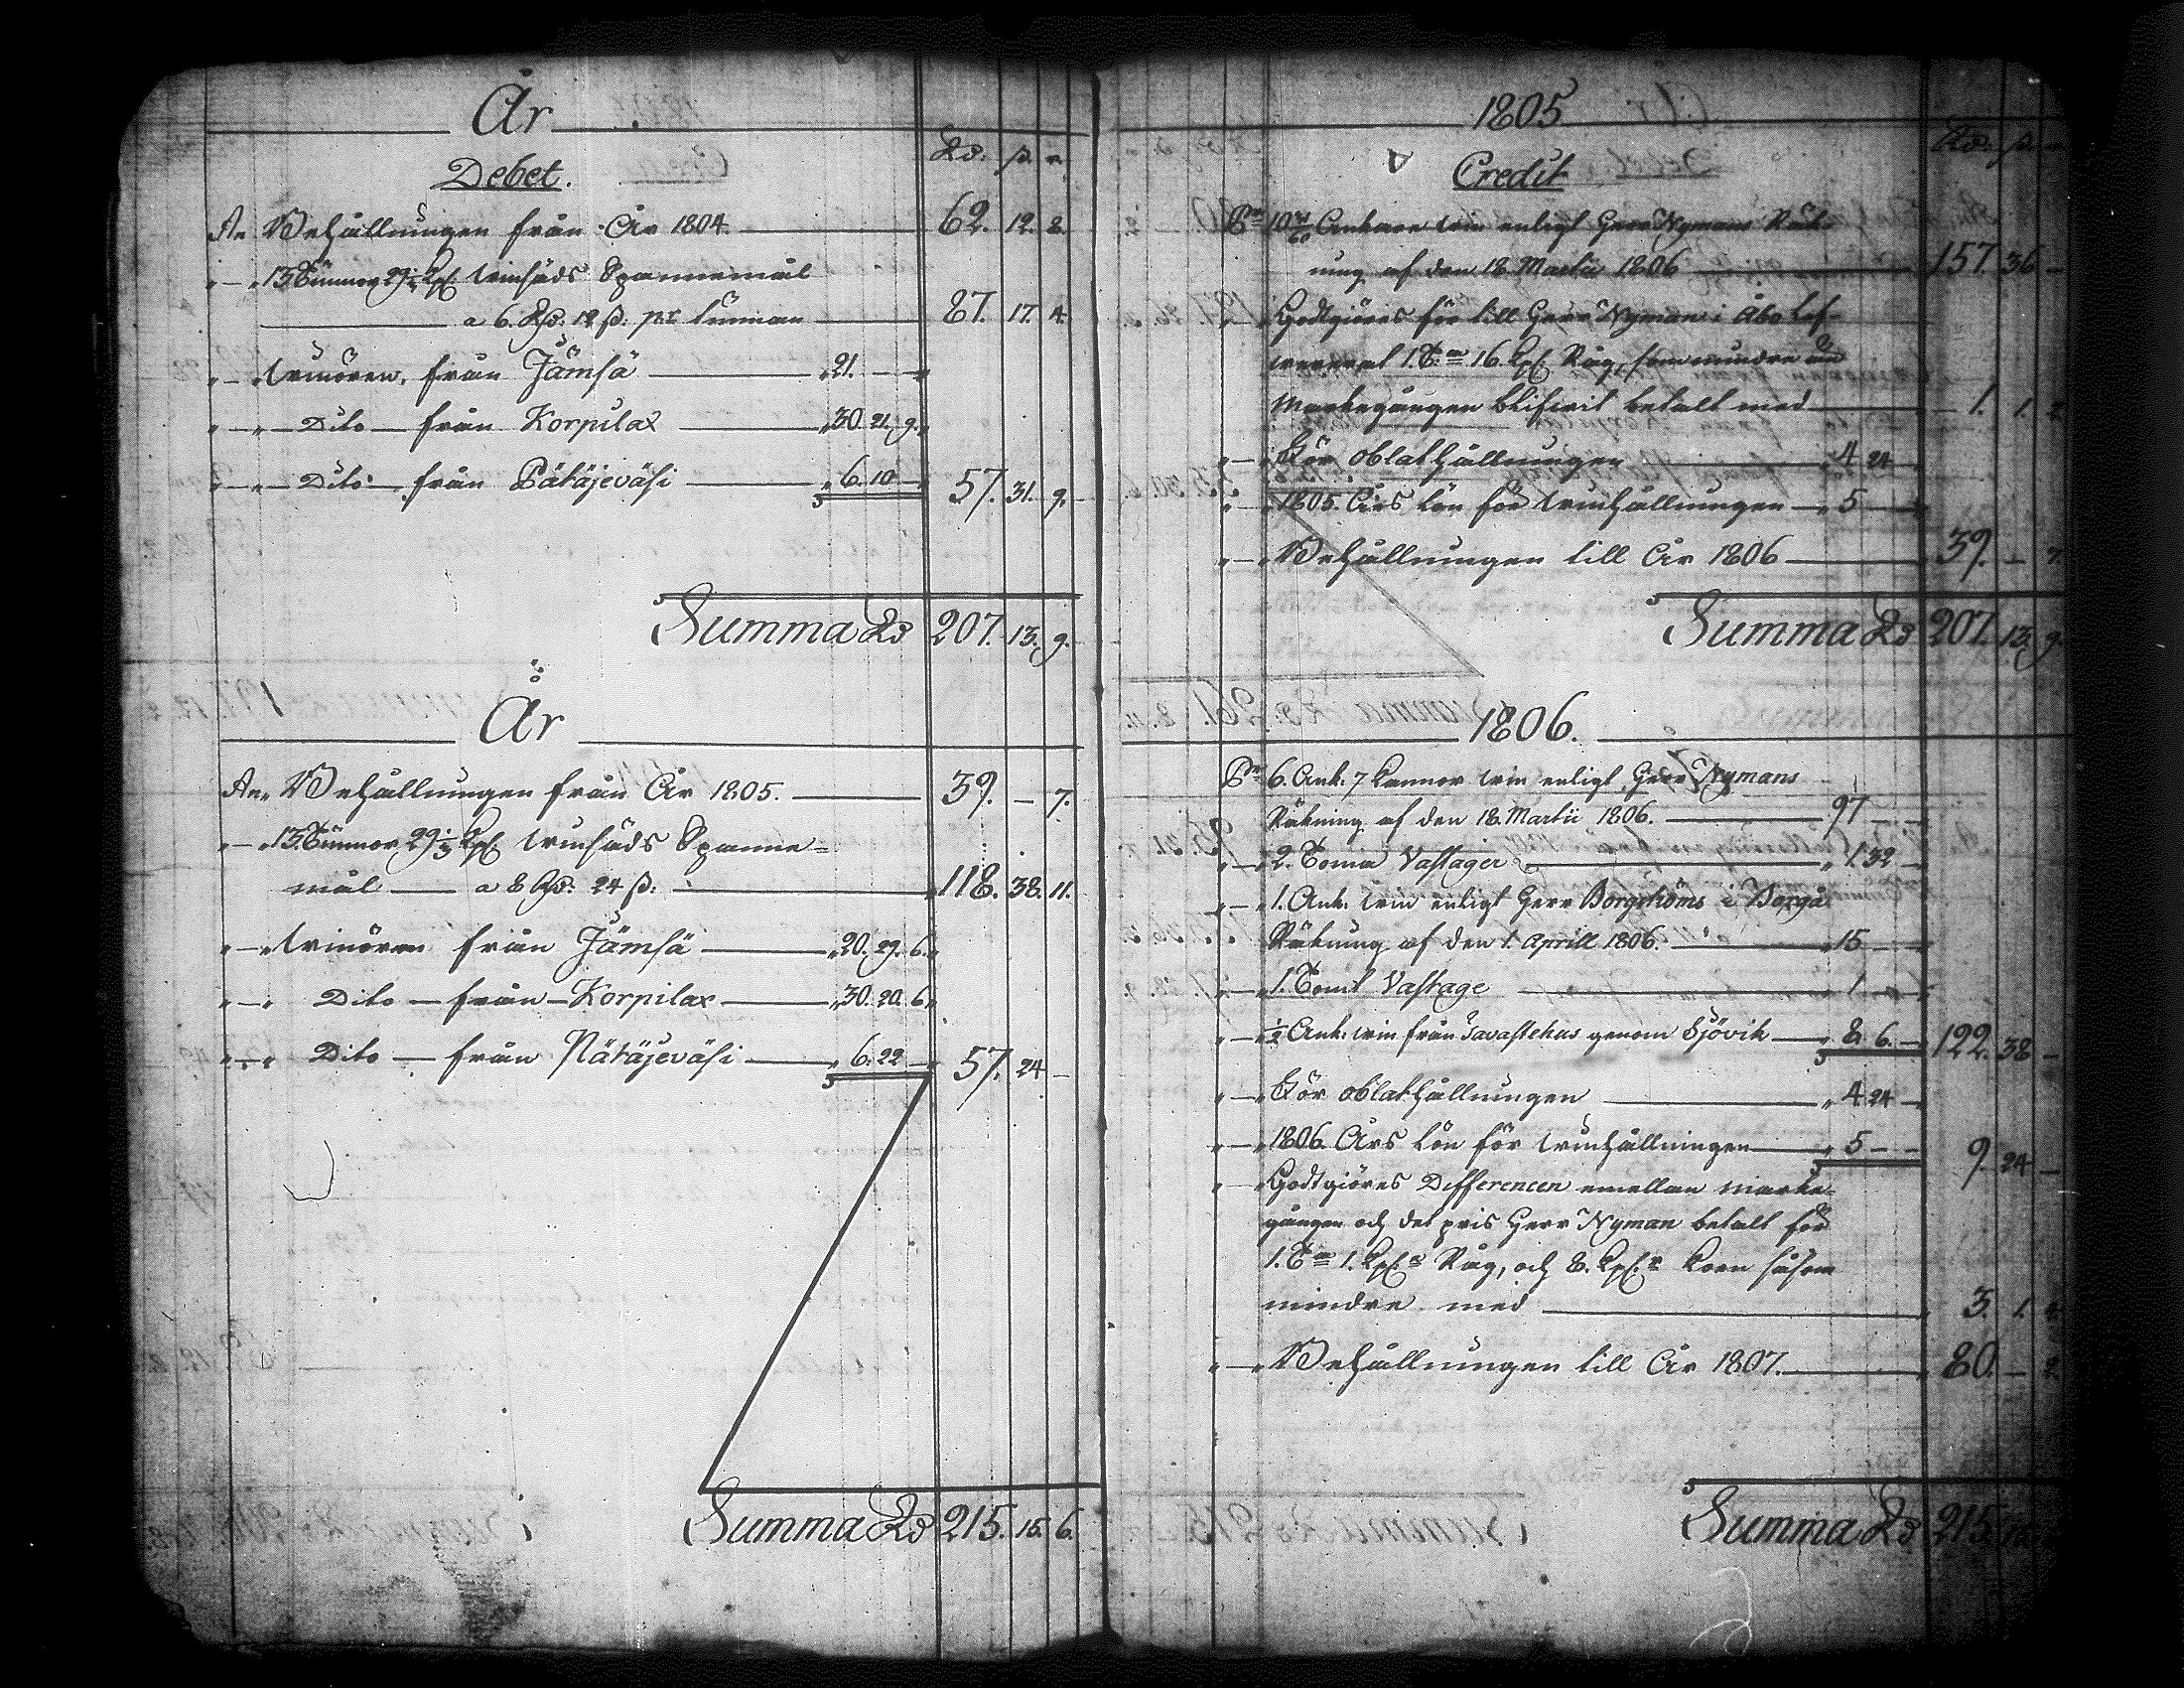 År
Debet. Rd. ß. r.
An Behållningen från År 1804. 62. 12. 8.
" — " 13 Tunnor 29 1/3 Kpr. winsäds Spannemål
a 6. Rd: 18 ß: pr tunnan 87. 17. 4.
" — " winören, från Jämsä 21. —
" — " Dito — från Korpilax 30. 21. 9.
" — " Dito — från Pätäjeväsi 6. 10 — 57. 31. 9.
Summa Rd 207. 13. 9.
År
An Behållningen från År 1805. 39. — 7.
" — " 13 Tunnor 29 1/3 Kpr. winsäds Spanne=
mål — a 8 Rd: 24 ß: 118. 38. 11.
" — " winören från Jämsä 20. 29. 6.
" — " Dito — från — Korpilax 30. 20. 6
" — " Dito — från Pätäjeväsi 6. 22 — 57. 24 —
Summa Rd 215. 15. 6.
1805
Credit Rd. ß.
Pr 10 /60 Ankare win enligt Herr Nymans Räk=
ning af den 18 Martii 1806 157. 36 —
" — " Godtgiöres för till Herr Nyman i Åbo lef=
wererat 1. T:a 16. Kpr Råg, som mindre än
Markegången blifwit betalt med 1. 1.
" — " För oblathållningen 4 24
" — " 1805. Års lön för winhållningen — 5 —
" — " Behållningen till År 1806 39. — 7.
Summa Rd 207. 13. 9.
1806.
Pr 6. Ank. 7 Kannor win enligt Herr Nymans
Räkning af den 18. Martii 1806. 97 —
" — " 2. Toma Vastager 1. 32 —
" — " 1. Ank. win enligt Herr Borgströms i Borgå
Räkning af den 1. Aprill 1806. 15 —
" — " 1. Tomt Vastage 1 —
" — " 1/2 Ank. win från Tavastehus genom Sjövik — 8. 6. — 122. 38 —
" — " För oblathållningen 4 24 —
" — " 1806. Års lön för winhållningen — 5 — 9. 24 —
" — " Godtgiöres Differencen emellan marke=
gången och det pris Herr Nyman betalt för
1. T:a 1. Kpr Råg, och 8. Kpr Korn såsom
mindre med 3. 1.
" — " Behållningen till År 1807. 80. —
Summa Rd 215